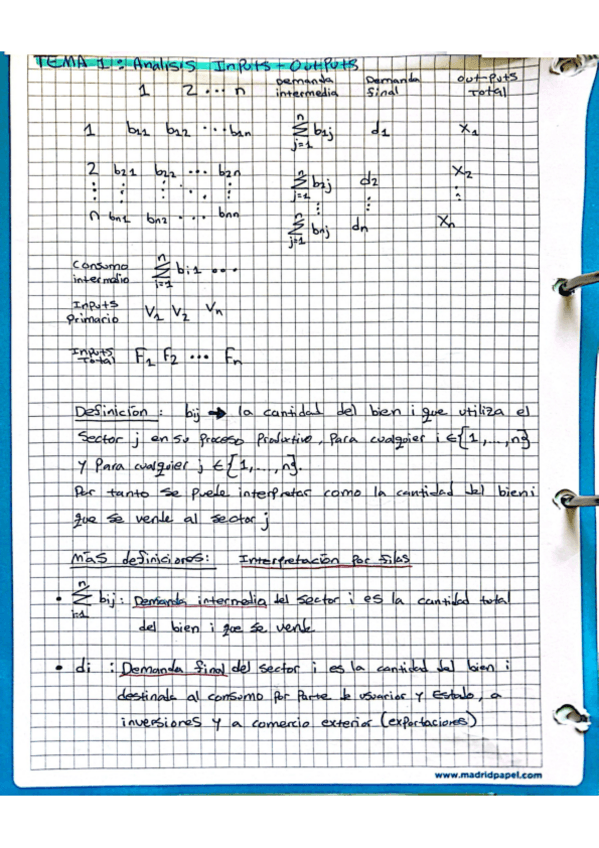 TEMA 1: Análisis Inputs-Outputs
1 2 ... n Demanda intermedia Demanda final Out-puts Total
1 b11 b12 ... b1n n Σ j=1 b1j d1 X1
2 b21 b22 ... b2n n Σ j=1 b2j d2 X2
⋮ ⋮ ⋮ ⋱ ⋮ ⋮ ⋮ ⋮
n bn1 bn2 ... bnn n Σ j=1 bnj dn Xn
Consumo intermedio n Σ i=1 bi1 ...
Inputs Primario V1 V2 Vn
Inputs Total F1 F2 ... Fn
Definición : bij → la cantidad del bien i que utiliza el
Sector j en su Proceso Productivo, Para cualquier i ∈ {1,...,n}
y Para cualquier j ∈ {1,...,n}.
Por tanto se puede interpretar como la cantidad del bien i
que se vende al sector j
Más definiciones: Interpretación por filas
• n Σ i=1 bij : Demanda intermedia del sector i es la cantidad total
del bien i que se vende
• di : Demanda final del sector i es la cantidad del bien i
destinada al consumo por parte de usuarios y Estado, a
inversiones y a comercio exterior (exportaciones)
www.madridpapel.com